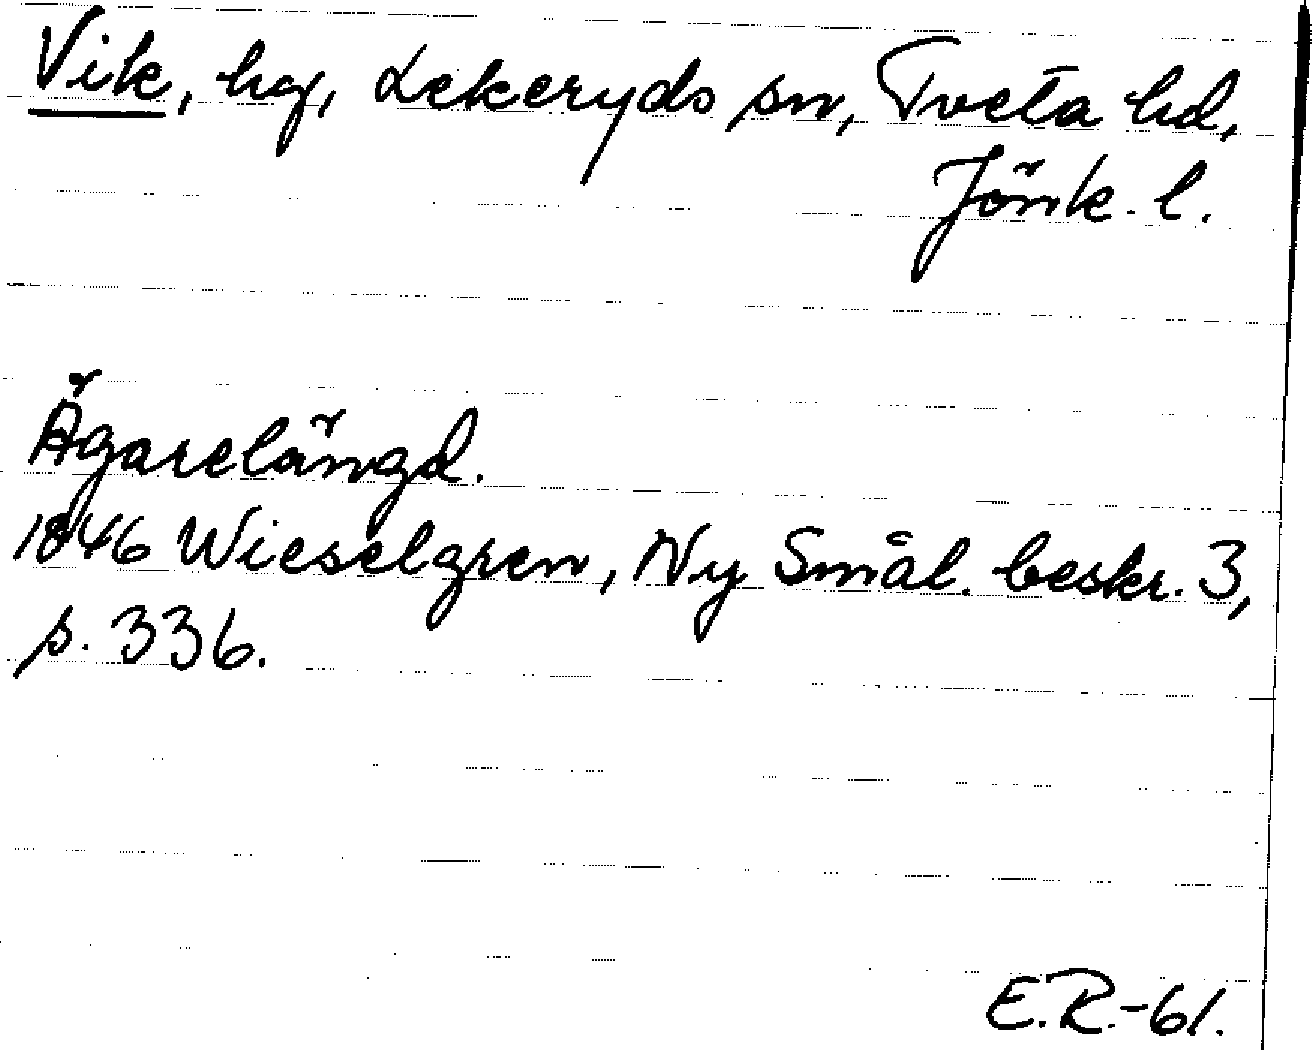 Vik, hg, Lekeryds sn, Tveta hd,
Jönk. l.
Ägarelängd.
1846 Wieselgren, Ny Smål. beskr. 3,
s. 336.
E.R.-61.